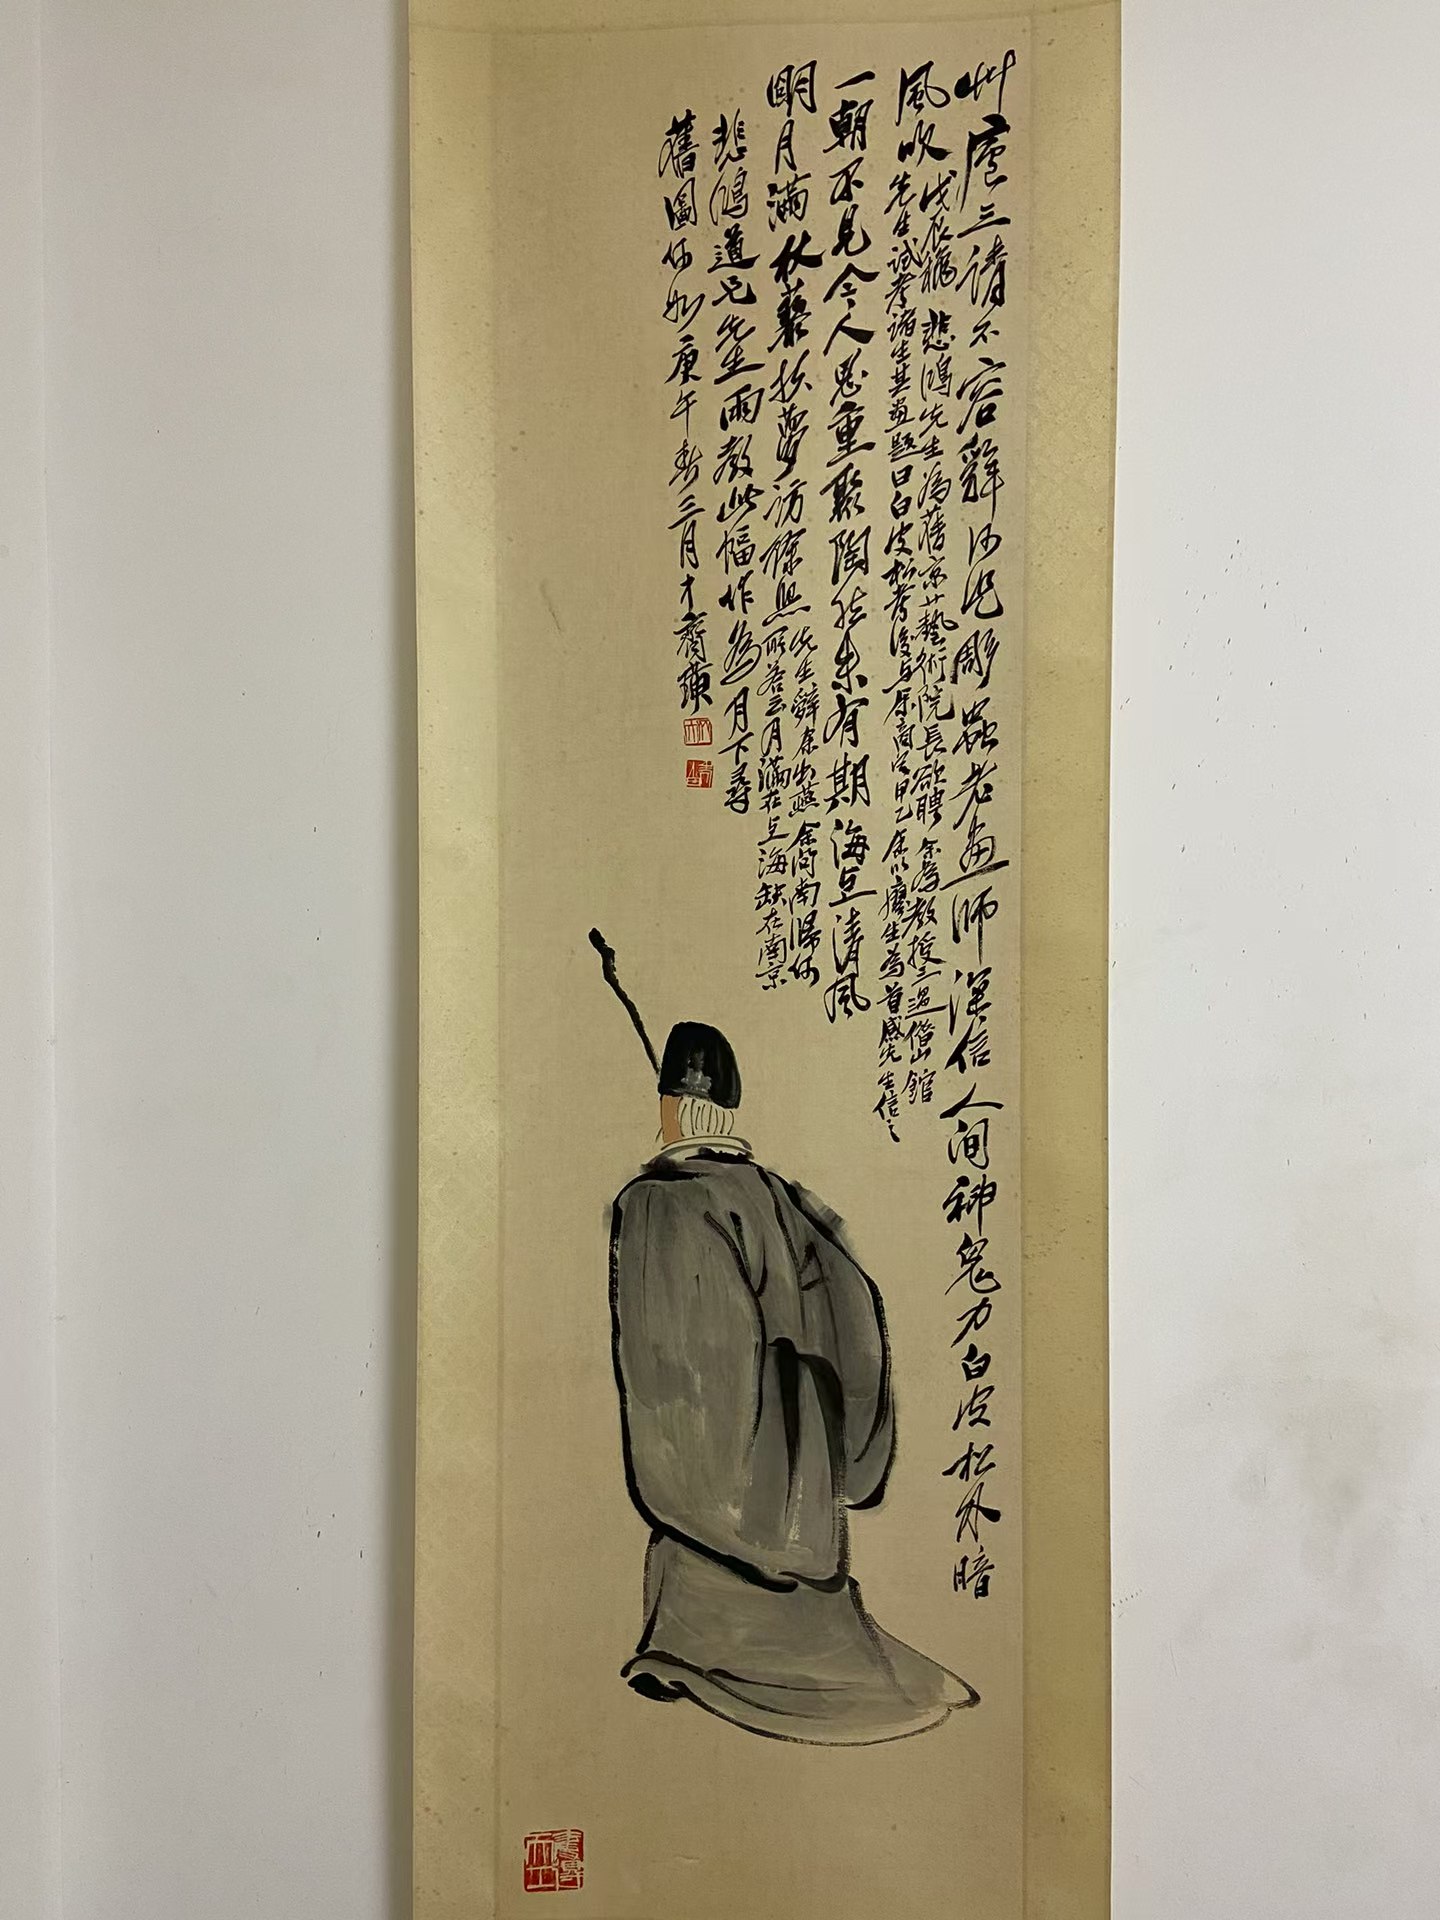 艸廬三請不容辭何況彫蟲老畫師深信人間神鬼力白皮松外暗
風吹戊辰穐悲鴻先生為舊京藝術院長欲聘余為教授三過借山館
先生試考諸生其畫題曰白皮松考後與余商定甲乙余以廖生為首感先生信之
一朝不見令人思重聚陶然未有期海上清風
明月滿杖藜扶夢訪徐熙先生辭余出燕余問南歸何
所答云月滿在上海缺在南京
悲鴻道兄先生兩教此幅作為月下尋
舊圖何如庚午春三月才齊璜
木人